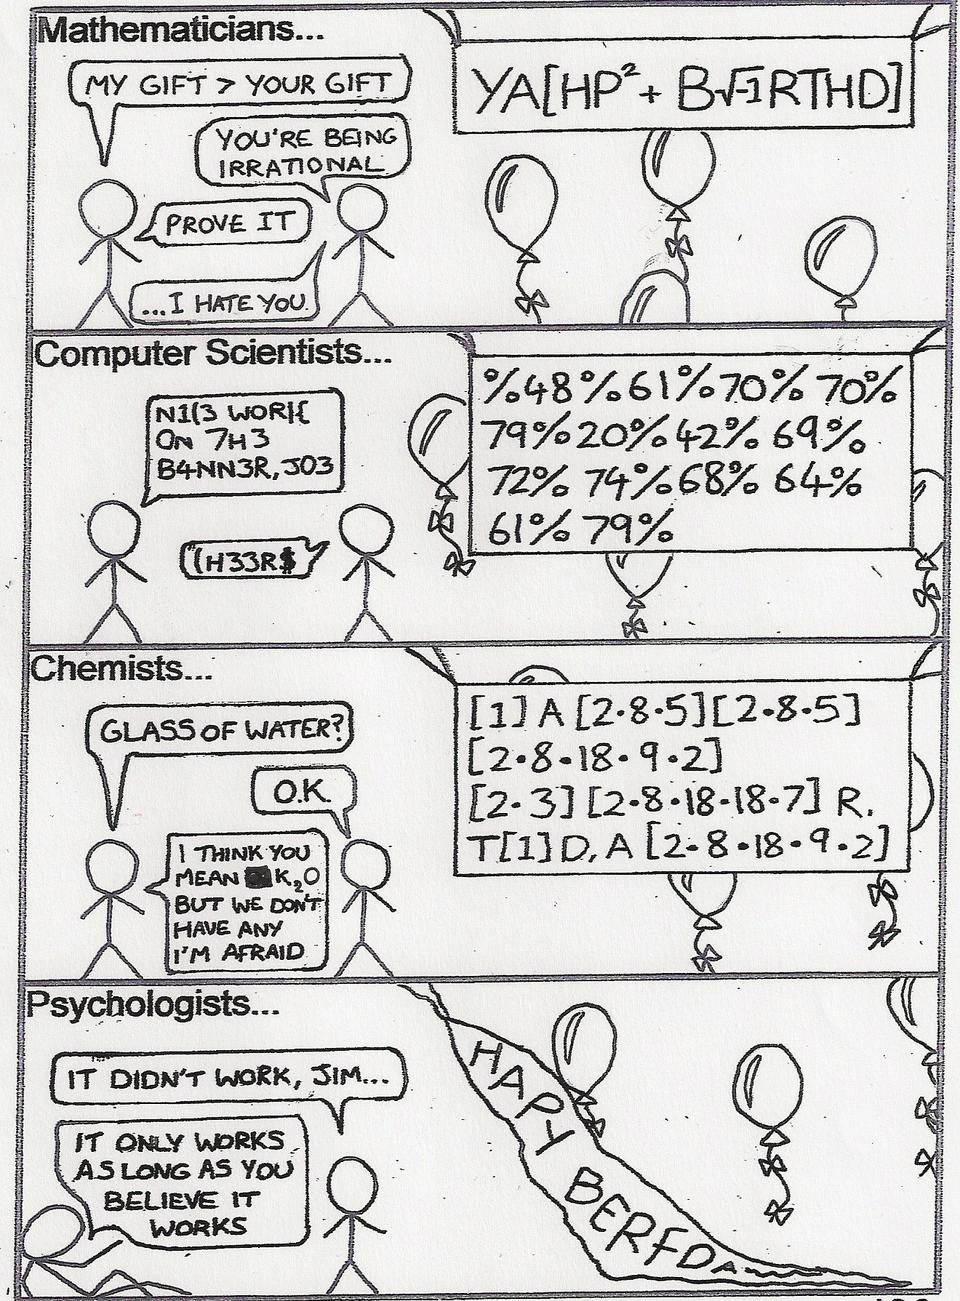 Mathematicians...
MY GIFT > YOUR GIFT
YOU'RE BEING
IRRATIONAL
PROVE IT
...I HATE YOU.
YA[HP² + B√-1RTHD]
Computer Scientists...
N1(3 WOR|{
ON 7H3
B4NN3R, J03
"(H33R$
%48%61%70%70%
79%20%42%69%
72%74%68%64%
61%79%
Chemists...
GLASS OF WATER?
O.K.
I THINK YOU
MEAN K₂O
BUT WE DON'T
HAVE ANY
I'M AFRAID
[1] A [2·8·5][2·8·5]
[2·8·18·9·2]
[2·3] [2·8·18·18·7] R.
T[1]D, A [2·8·18·9·2]
Psychologists...
IT DIDN'T WORK, JIM...
IT ONLY WORKS
AS LONG AS YOU
BELIEVE IT
WORKS
HAPPY BERFDA